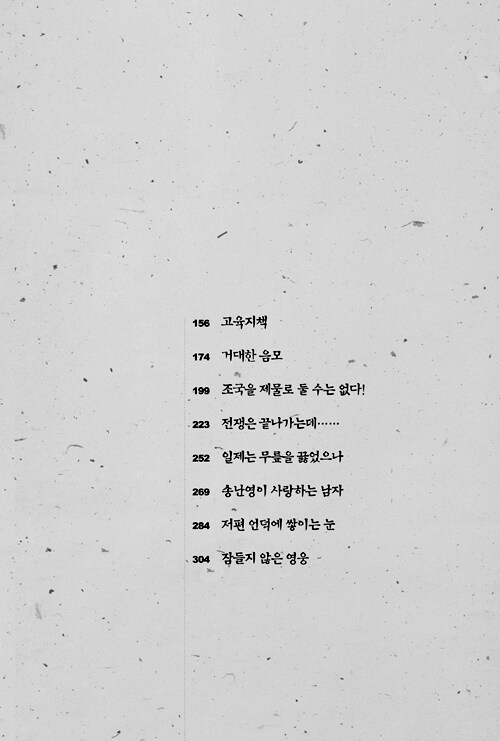 156 고육지책
174 거대한 음모
199 조국을 제물로 둘 수는 없다!
223 전쟁은 끝나가는데……
252 일제는 무릎을 꿇었으나
269 송난영이 사랑하는 남자
284 저편 언덕에 쌓이는 눈
304 잠들지 않은 영웅